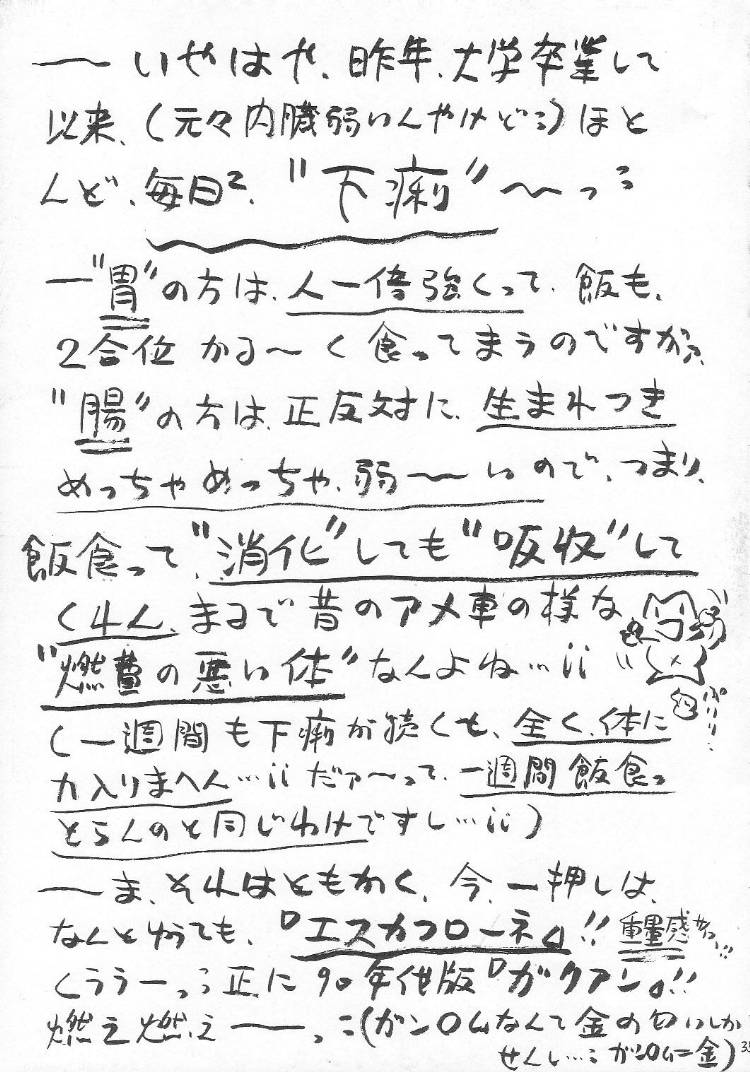 ーーいやはや、昨年、大学卒業して
以来、(元々内臓弱いんやけどミ)ほと
んど、毎日²、"下痢"〜っミ
ー"胃"の方は、人一倍強くって、飯も、
2合位かる〜く食ってまうのですがァ、
"腸"の方は、正反対に、生まれつき
めっちゃめっちゃ、弱〜〜いので、つまり、
飯食って、"消化"しても"吸収"して
くれん、まるで昔のアメ車の様な
"燃費の悪い体"なんよね…ii
ぷりり…
(一週間も下痢が続くと、全く、体に
力入りまへん…ii だァ〜って、一週間飯食っ
とらんのと同じわけですし…ii)
ーーま、それはともかく、今、一押しは、
なんと申うても、『エスカフローネ』!!
重量感せつ…!!
くううーっミ正に90年代版『ガ〇〇アン』!!
燃え燃えーーっミ(ガン〇ムなんて金の匂いしか
せんし…ミ ガン〇ム=金)